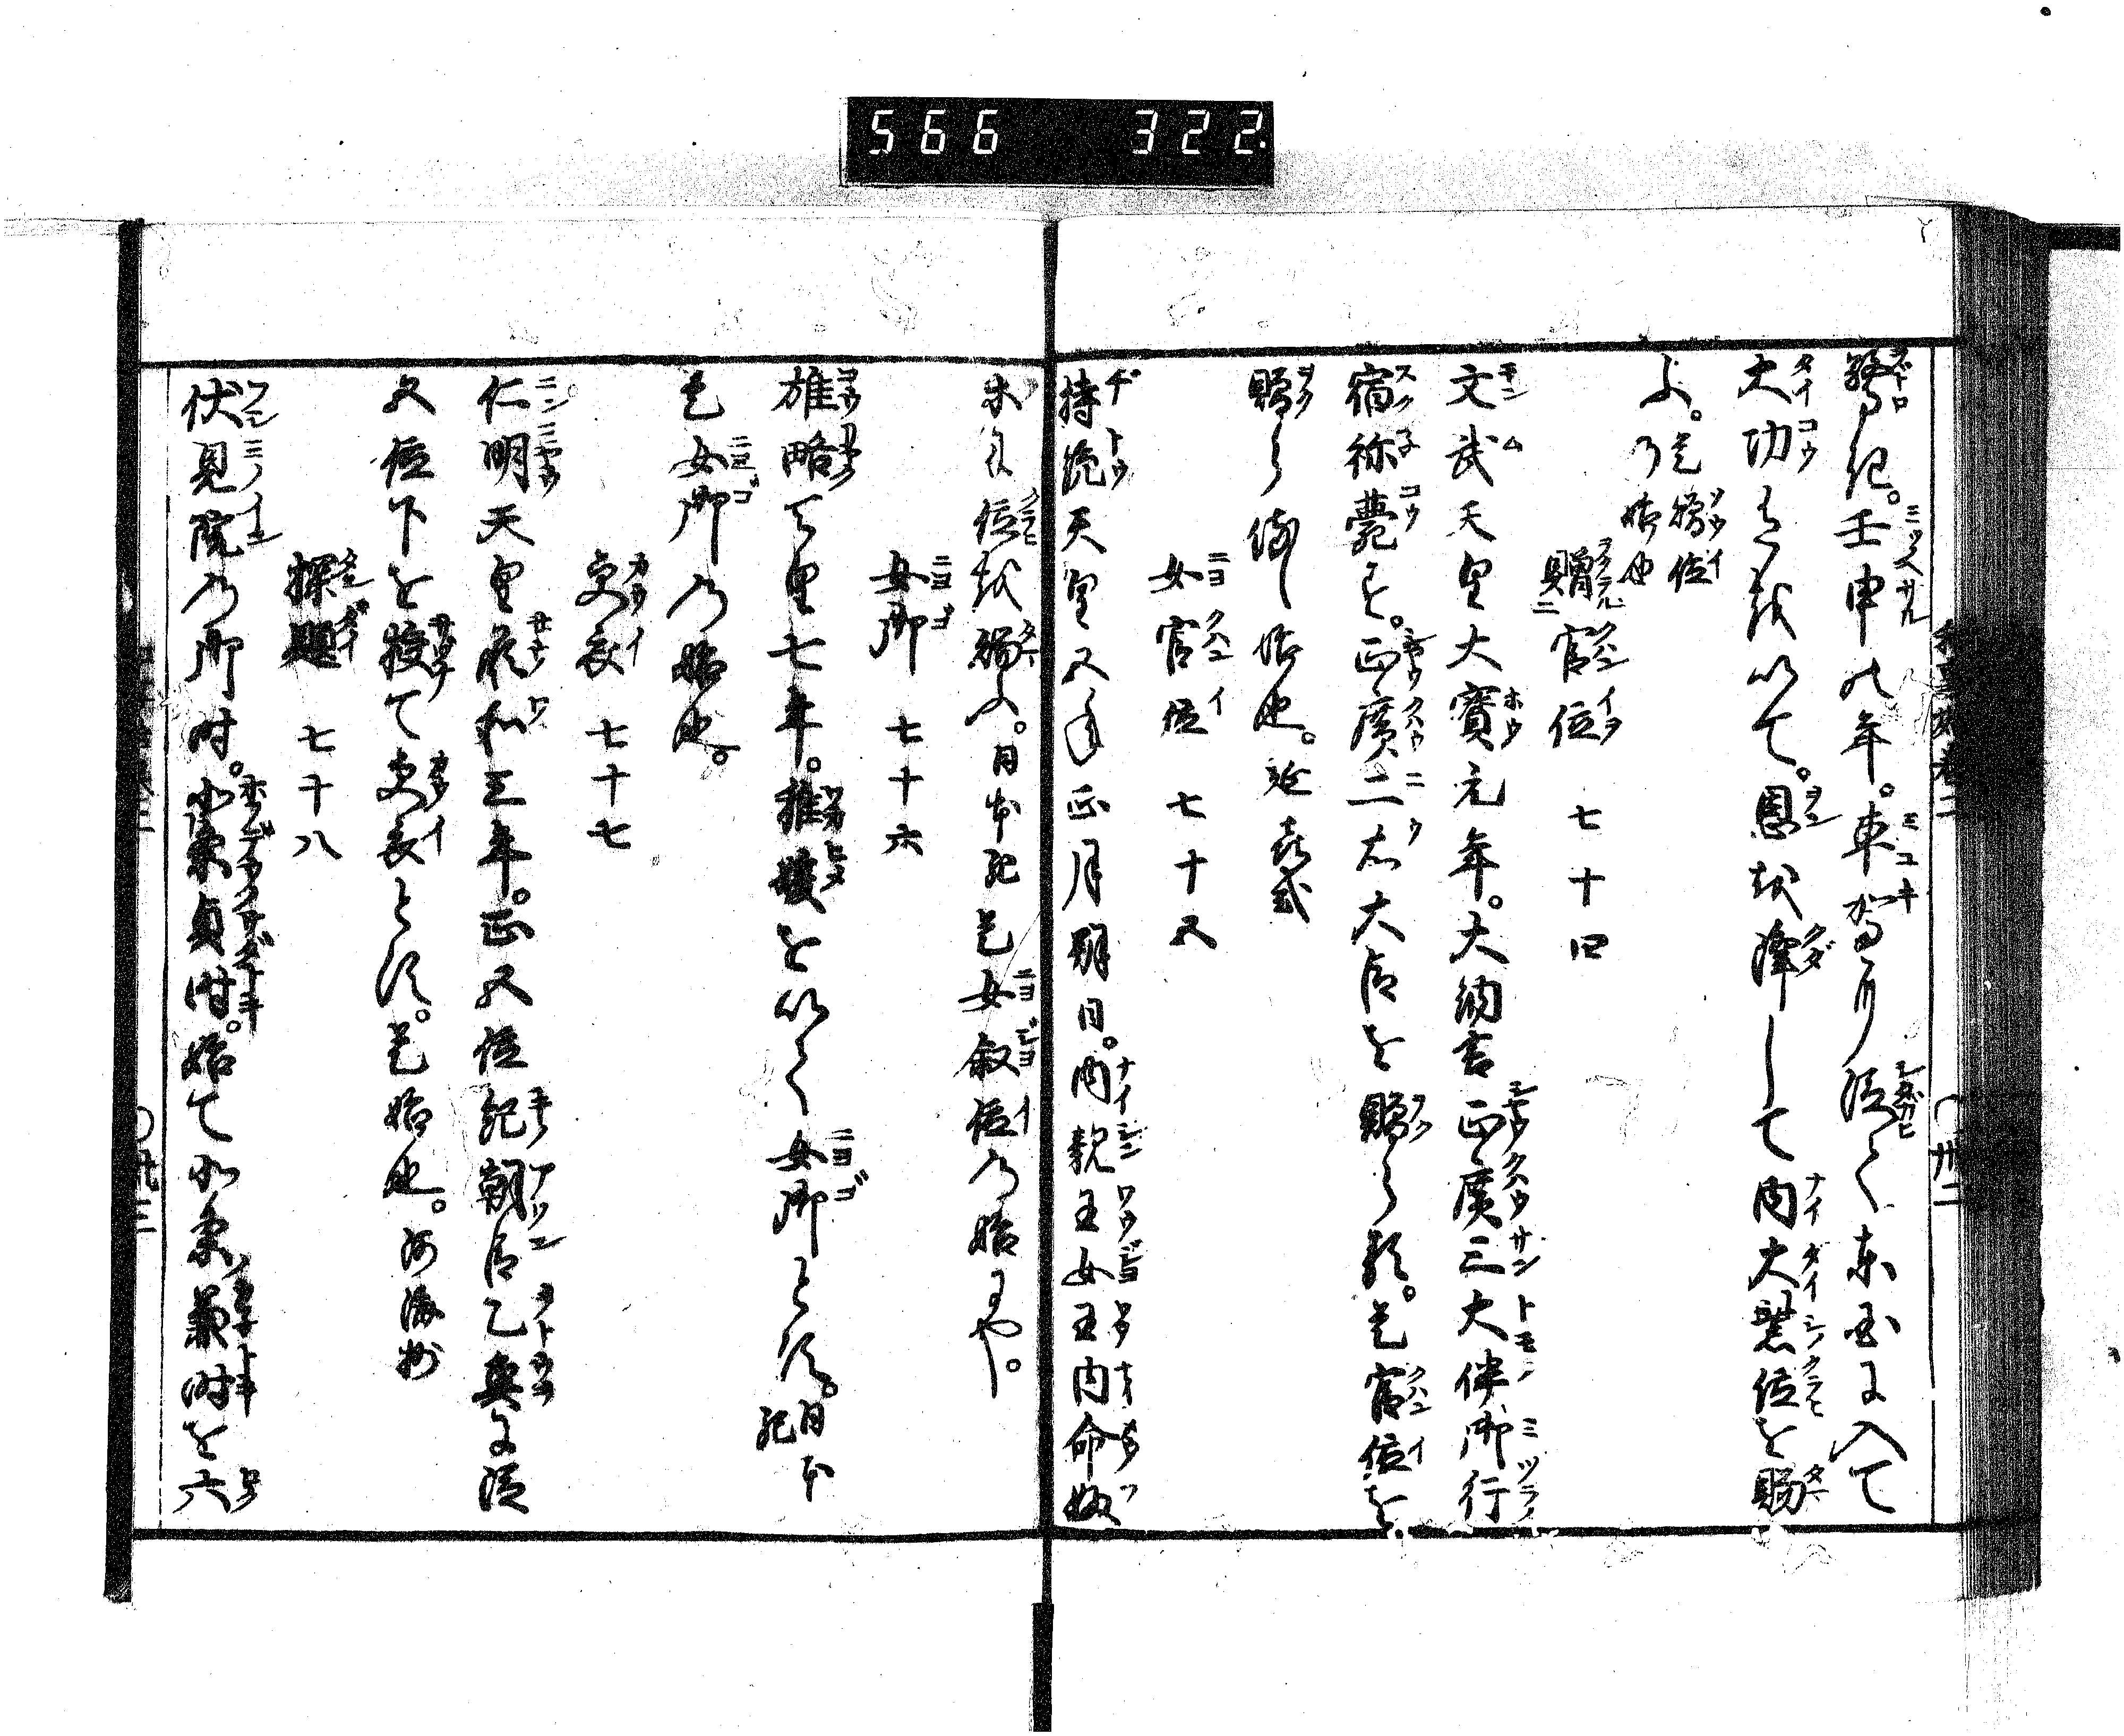 566 322
驚き。壬申の年。車駕に従て東国に入て
大功有を以て。恩を降して内大紫位を賜
ふ。是贈位
の始也
贈官位 七十四
文武天皇大寳元年。大納言正廣三大伴御行
宿祢薨ず。正廣二右大臣を贈らる。是官位を
贈らるゝ始也。延喜式
女官位 七十五
持統天皇五年正月朔日。内親王女王内命婦
等に位を賜ふ。日本紀是女叙位の始にや。
女御 七十六
雄略天皇七年。稚媛を以て女御とす。日本
紀
是女御の始也。
更衣 七十七
仁明天皇承和三年。正五位紀朝臣乙魚に従
四位下を授て更衣とす。是始也。河海抄
探題 七十八
伏見院の御時。北条貞時。始て北条兼時を六